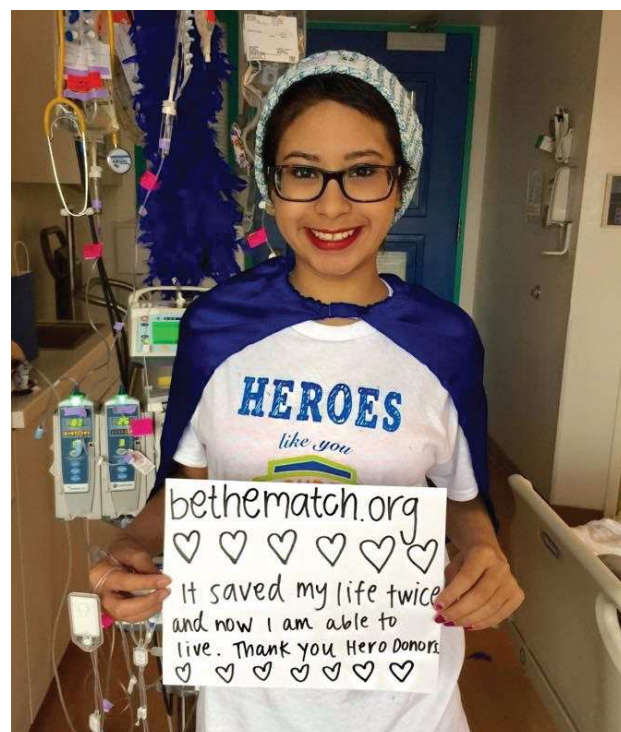 HEROES
like you
bethematch.org
It saved my life twice
and now I am able to
live. Thank you Hero Donors